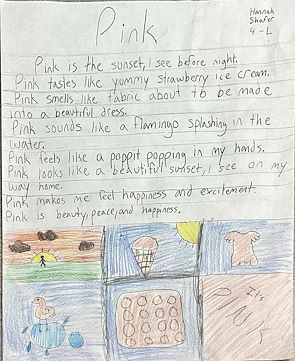 Pink
Hannah
Shafer
4-L
Pink is the sunset, I see before night.
Pink tastes like yummy strawberry ice cream.
Pink smells like fabric about to be made
into a beautiful dress.
Pink sounds like a flamingo splashing in the
water.
Pink feels like a poppit popping in my hands.
Pink looks like a beautiful sunset, I see on my
way home.
Pink makes me feel happiness and excitement.
Pink is beauty, peace, and happiness.
It's
PINK